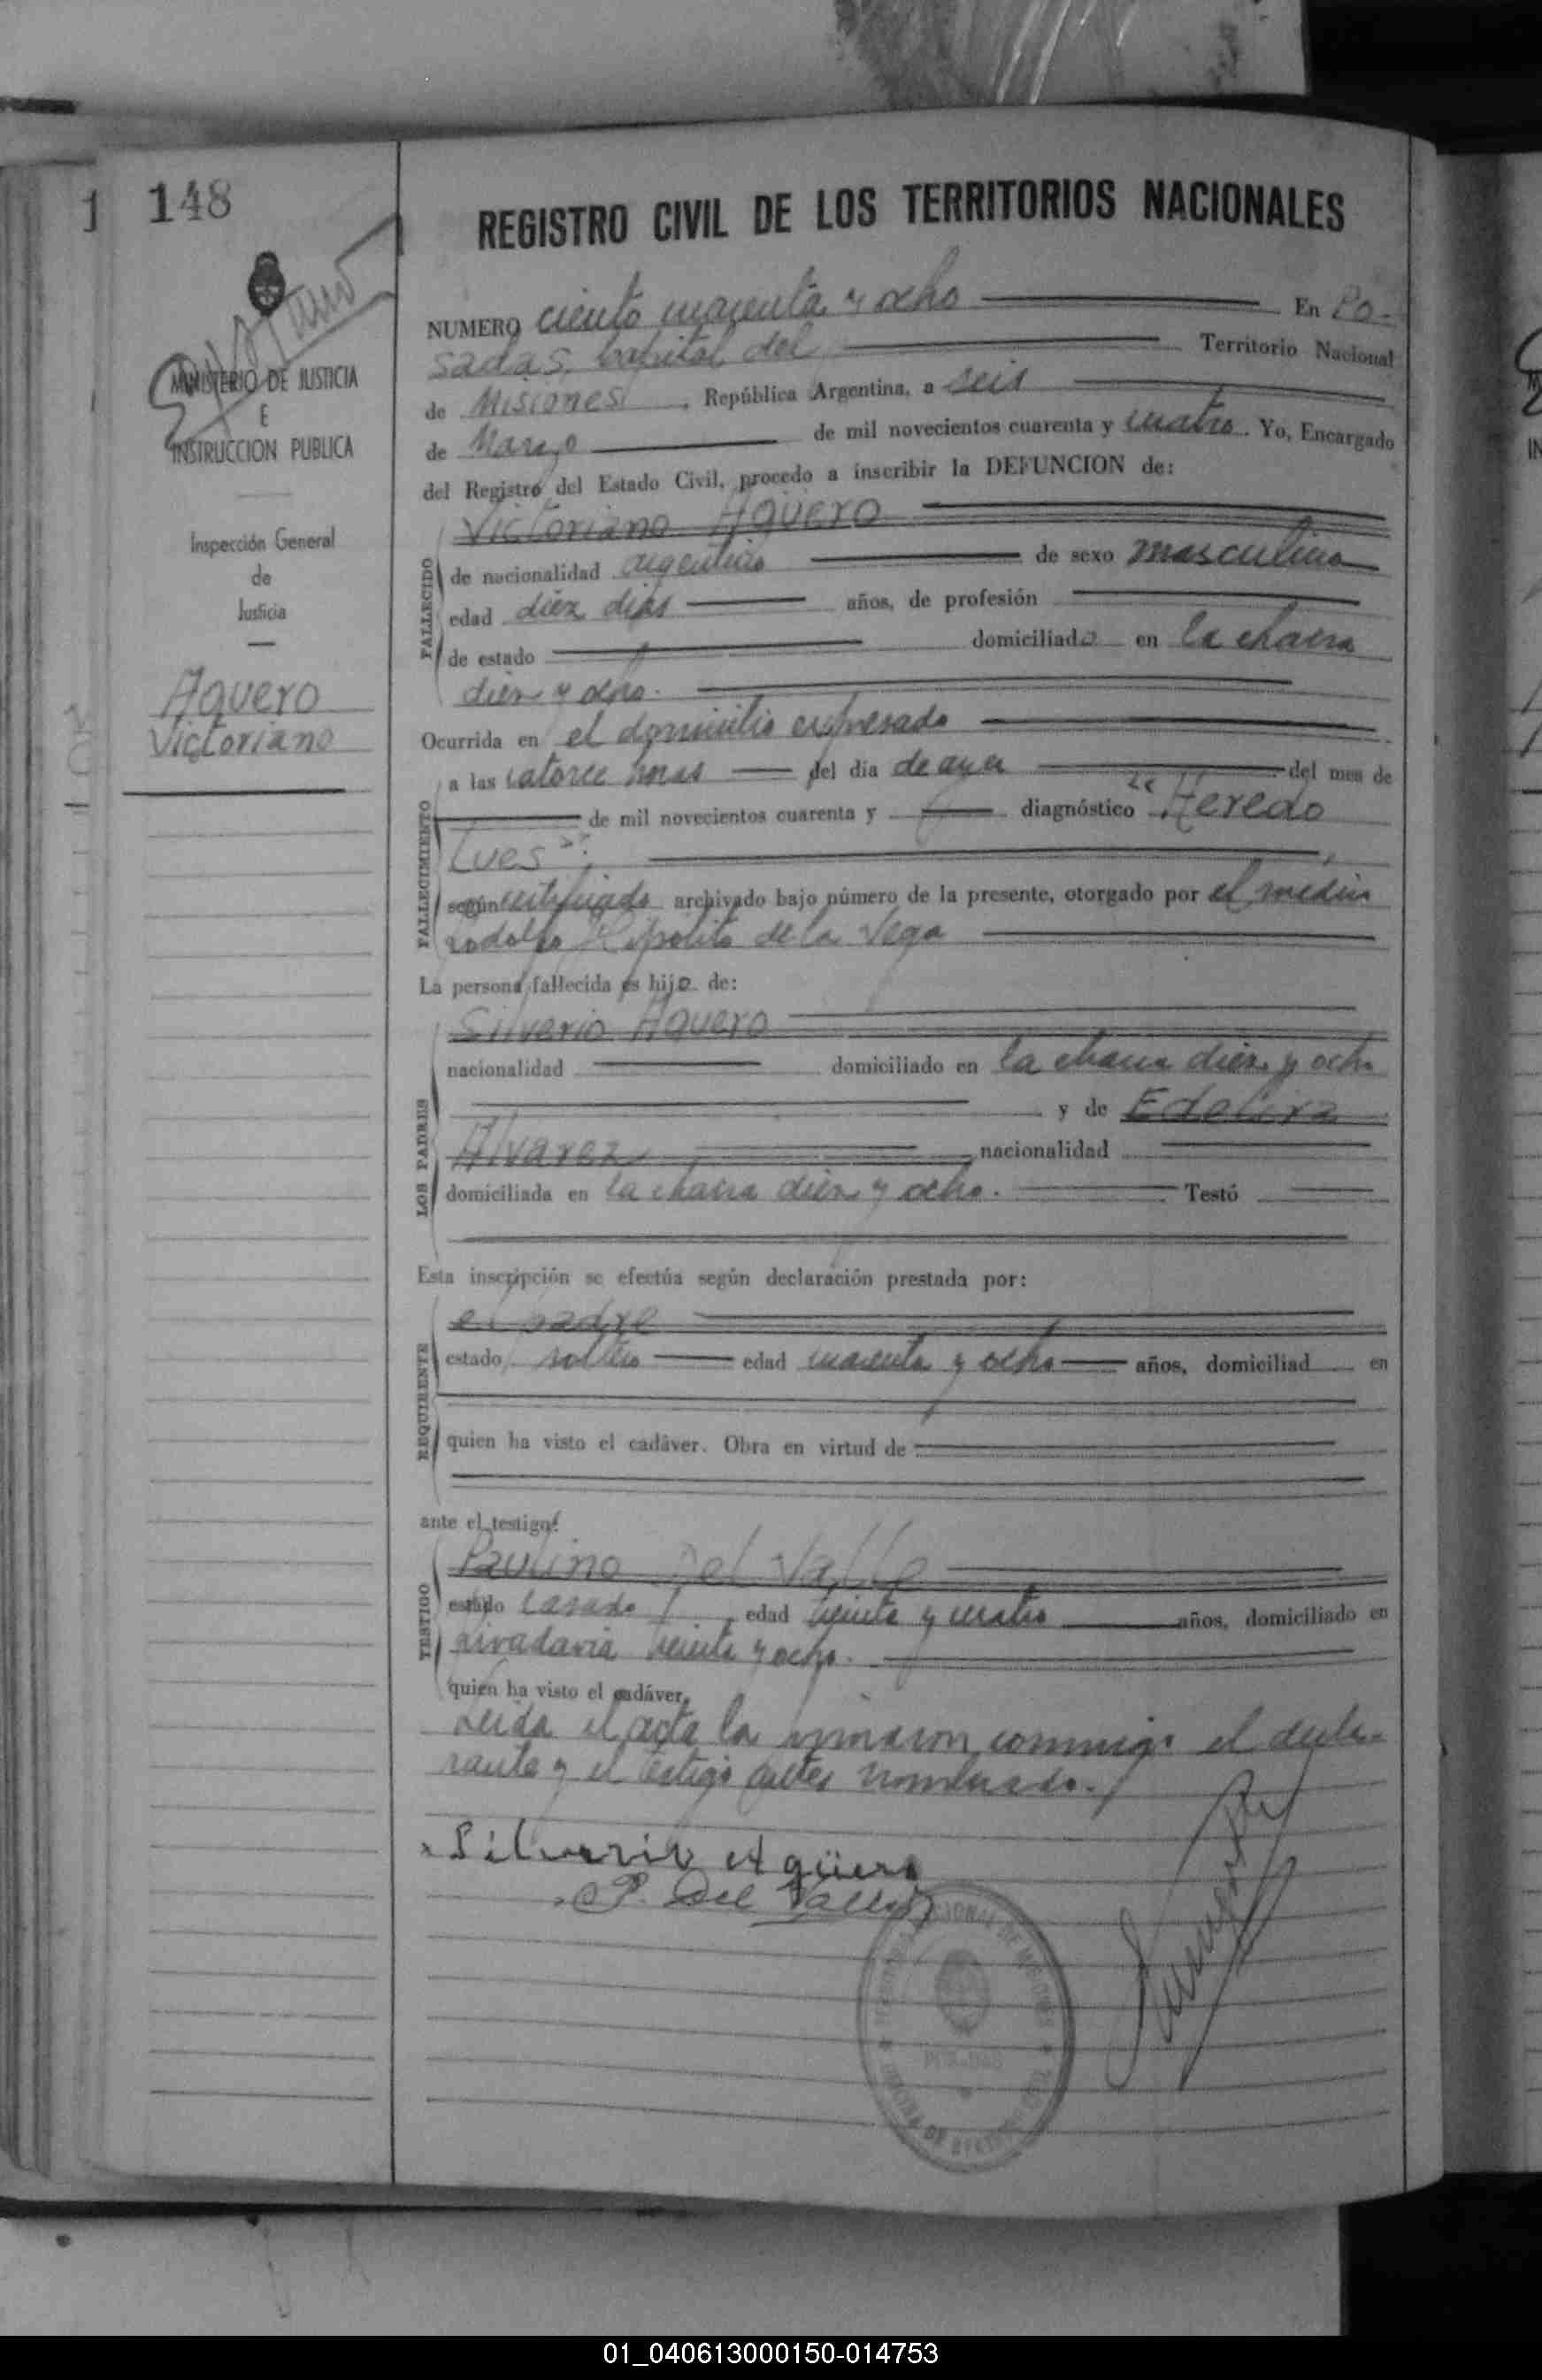 148
MINISTERIO DE JUSTICIA
E
INSTRUCCION PUBLICA
Inspección General
de
Justicia
Aguero
Victoriano
REGISTRO CIVIL DE LOS TERRITORIOS NACIONALES
NUMERO ciento cuarenta y ocho En Po-
sadas, Capital del Territorio Nacional
de Misiones, República Argentina, a seis
de Marzo de mil novecientos cuarenta y cuatro. Yo, Encargado
del Registro del Estado Civil, procedo a inscribir la DEFUNCION de:
Victoriano Agüero
FALLECIDO
de nacionalidad argentino de sexo masculino
edad diez dias años, de profesión
de estado domiciliado en la chacra
diez y ocho.
Ocurrida en el domicilio expresado
FALLECIMIENTO
a las catorce horas del dia de ayer del mes de
de mil novecientos cuarenta y diagnóstico "Heredo
Lues":
según certificado archivado bajo número de la presente, otorgado por el médico
Rodolfo Hipolito de la Vega
La persona fallecida es hijo de:
LOS PADRES
Silverio Aguero
nacionalidad domiciliado en la chacra diez y ocho
y de Edelira
Alvarez nacionalidad
domiciliada en la chacra diez y ocho. Testó
Esta inscripción se efectúa según declaración prestada por:
REQUIRENTE
el padre
estado soltero edad cuarenta y ocho años, domiciliad en
quien ha visto el cadáver. Obra en virtud de
ante el testigo:
TESTIGO
Paulino Del Valle
estado casado, edad treinta y cuatro años, domiciliado en
rivadavia veinte y ocho.
quien ha visto el cadáver.
Leida el acta la firmaron conmigo el decla-
rante y el testigo antes nombrado.
Silverio Agüero
P. Del Valle
POSADAS
01_040613000150-014753